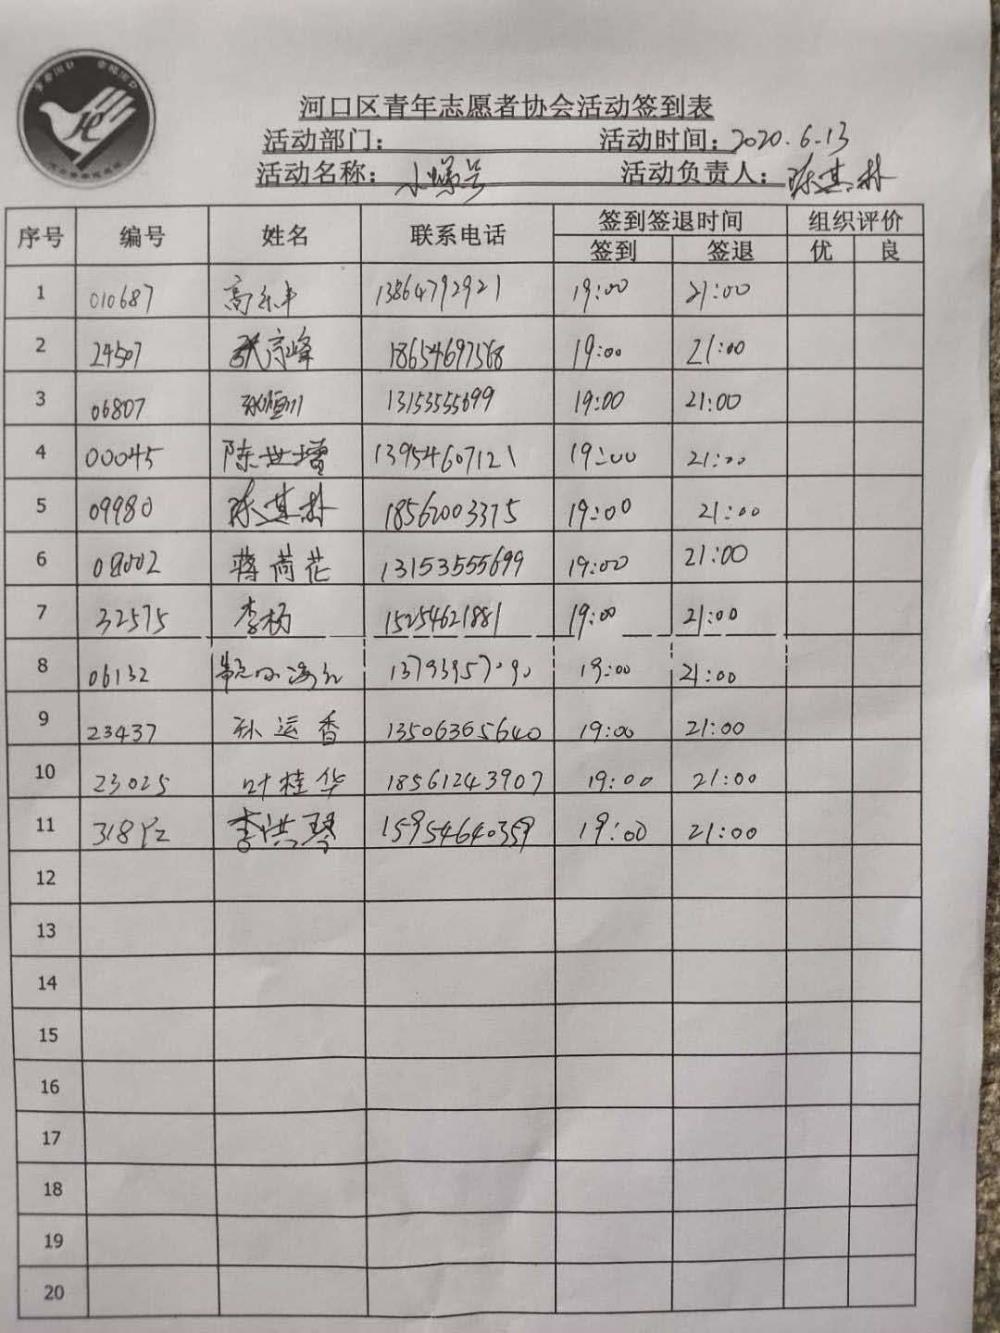 河口区青年志愿者协会活动签到表
活动部门： 活动时间：2020.6.13
活动名称： 小螺号 活动负责人：陈其林
序号 编号 姓名 联系电话 签到签退时间 组织评价
签到 签退 优 良
1 010687 13864792921 19:00 21:00
2 24507 张宗峰 18654697568 19:00 21:00
3 06807 13153555699 19:00 21:00
4 00045 陈世增 13954607121 19:00 21:00
5 09980 陈其林 18562003375 19:00 21:00
6 08002 蒋荷花 13153555699 19:00 21:00
7 32575 李杨 15254621881 19:00 21:00
8 06132 19:00 21:00
9 23437 孙运香 13506365640 19:00 21:00
10 23025 叶桂华 18561243907 19:00 21:00
11 李洪琴 15954640359 19:00 21:00
12
13
14
15
16
17
18
19
20